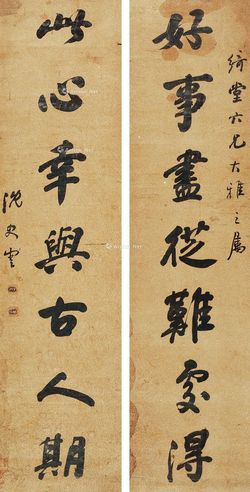 好事盡從難處得
綺堂六兄大雅之屬
此心幸與古人期
沈史雲